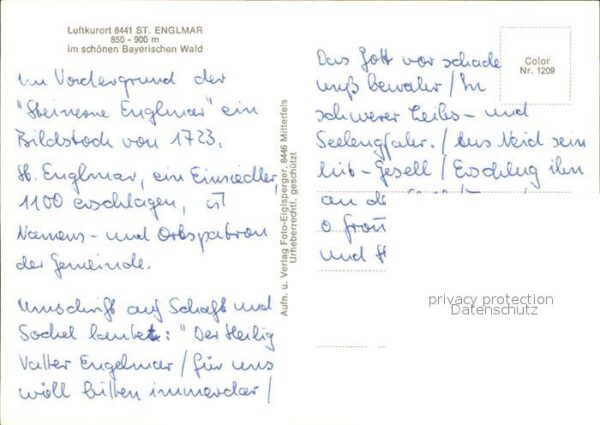 Luftkurort 8441 ST. ENGLMAR
850 - 900 m
im schönen Bayerischen Wald
Im Vordergrund der
"Steinerne Englmar" ein
Bildstock von 1723.
St. Englmar, ein Einsiedler,
1100 erschlagen, ist
Namens- und Ortspatron
der Gemeinde.
Umschrift auf Schaft und
Sockel lautet: "Der Heilig
Vatter Engelmar / für uns
wöll bitten immerdar /
Aufn. u. Verlag Foto-Eiglsperger, 8446 Mitterfels
Urheberrechtl. geschützt
Das Gott vor schade
muß bewahr / In
schwerer Leibs- und
Seelengfahr. / Aus Neid sein
Mit-Gesell / Erschlug ihn
an de
o Grau
und H
Color
Nr. 1209
privacy protection
Datenschutz